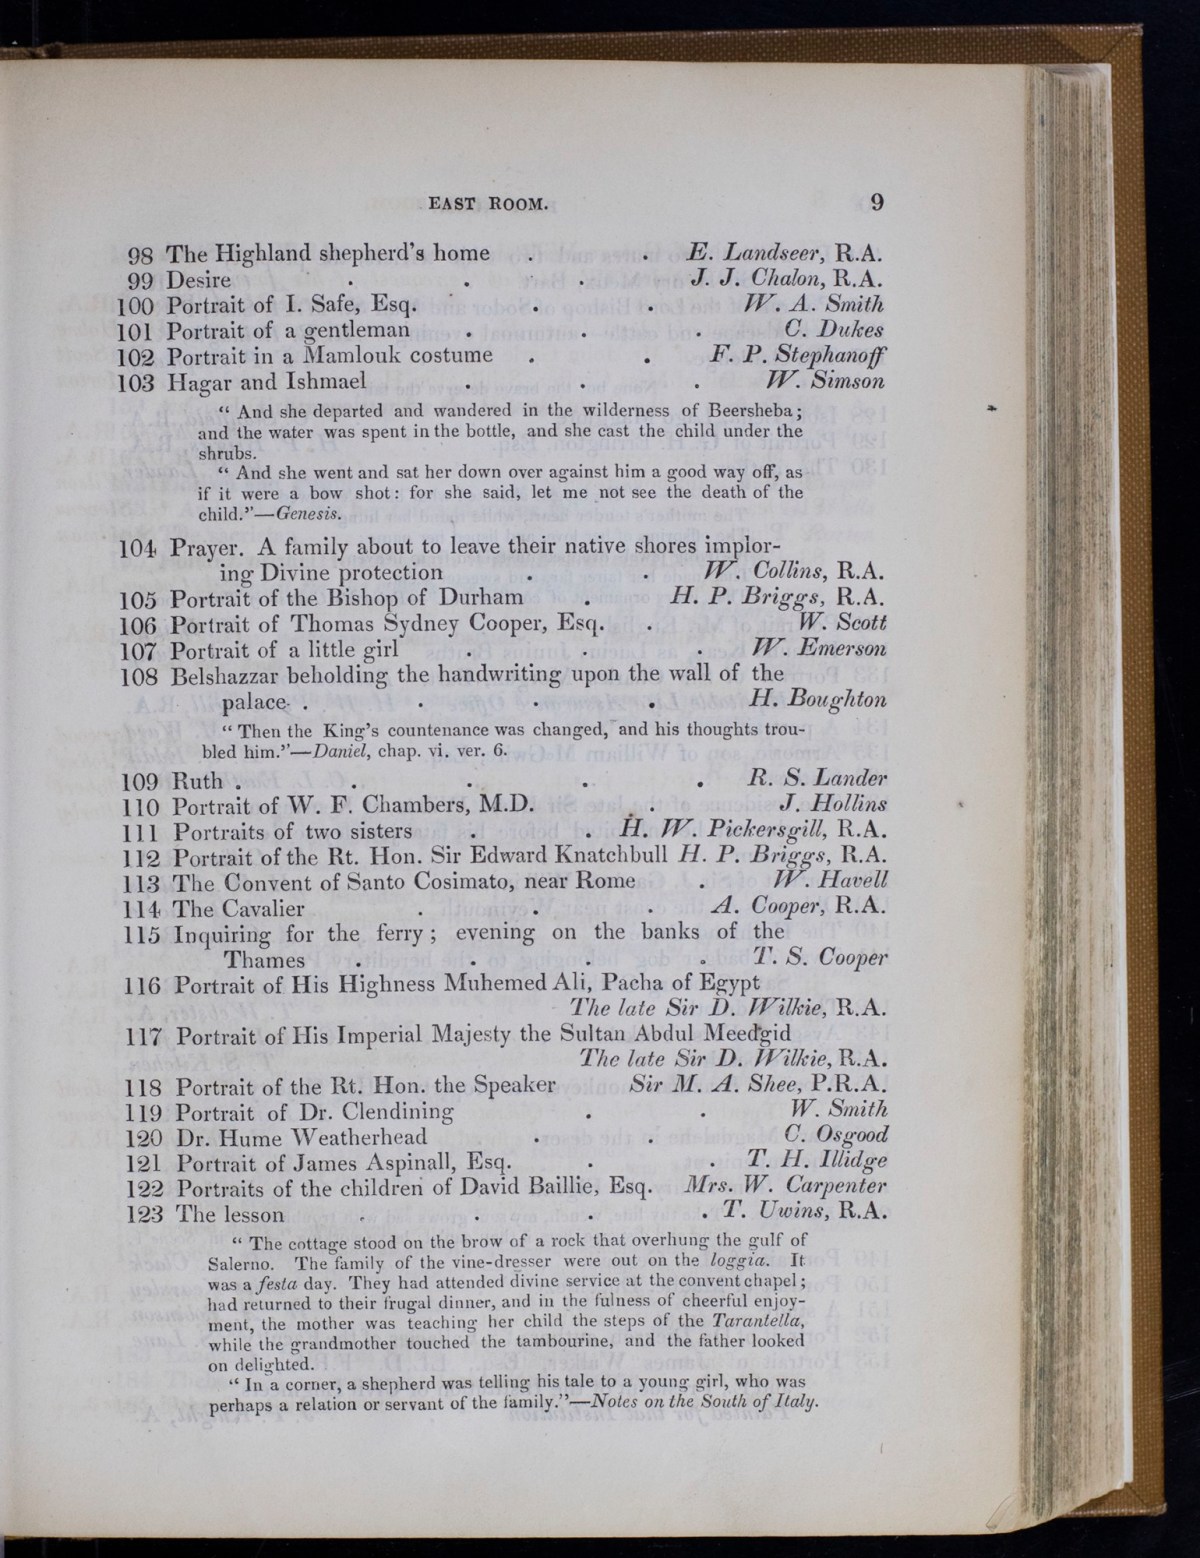 EAST ROOM. 9
98 The Highland shepherd's home . . E. Landseer, R.A.
99 Desire . . . J. J. Chalon, R.A.
100 Portrait of I. Safe, Esq. . . W. A. Smith
101 Portrait of a gentleman . . . C. Dukes
102 Portrait in a Mamlouk costume . . F. P. Stephanoff
103 Hagar and Ishmael . . . W. Simson
“ And she departed and wandered in the wilderness of Beersheba;
and the water was spent in the bottle, and she cast the child under the
shrubs.
“ And she went and sat her down over against him a good way off, as
if it were a bow shot: for she said, let me not see the death of the
child.”—Genesis.
104 Prayer. A family about to leave their native shores implor-
ing Divine protection . . W. Collins, R.A.
105 Portrait of the Bishop of Durham . H. P. Briggs, R.A.
106 Portrait of Thomas Sydney Cooper, Esq. . W. Scott
107 Portrait of a little girl . . . W. Emerson
108 Belshazzar beholding the handwriting upon the wall of the
palace . . . . H. Boughton
“ Then the King's countenance was changed, and his thoughts trou-
bled him.”—Daniel, chap. vi. ver. 6.
109 Ruth . . . . . R. S. Lander
110 Portrait of W. F. Chambers, M.D. . J. Hollins
111 Portraits of two sisters . . H. W. Pickersgill, R.A.
112 Portrait of the Rt. Hon. Sir Edward Knatchbull H. P. Briggs, R.A.
113 The Convent of Santo Cosimato, near Rome . W. Havell
114 The Cavalier . . . A. Cooper, R.A.
115 Inquiring for the ferry; evening on the banks of the
Thames . . . . T. S. Cooper
116 Portrait of His Highness Muhemed Ali, Pacha of Egypt
The late Sir D. Wilkie, R.A.
117 Portrait of His Imperial Majesty the Sultan Abdul Meedgid
The late Sir D. Wilkie, R.A.
118 Portrait of the Rt. Hon. the Speaker Sir M. A. Shee, P.R.A.
119 Portrait of Dr. Clendining . . W. Smith
120 Dr. Hume Weatherhead . . C. Osgood
121 Portrait of James Aspinall, Esq. . . T. H. Illidge
122 Portraits of the children of David Baillie, Esq. Mrs. W. Carpenter
123 The lesson . . . . T. Uwins, R.A.
“ The cottage stood on the brow of a rock that overhung the gulf of
Salerno. The family of the vine-dresser were out on the loggia. It
was a festa day. They had attended divine service at the convent chapel;
had returned to their frugal dinner, and in the fulness of cheerful enjoy-
ment, the mother was teaching her child the steps of the Tarantella,
while the grandmother touched the tambourine, and the father looked
on delighted.
“ In a corner, a shepherd was telling his tale to a young girl, who was
perhaps a relation or servant of the family.”—Notes on the South of Italy.